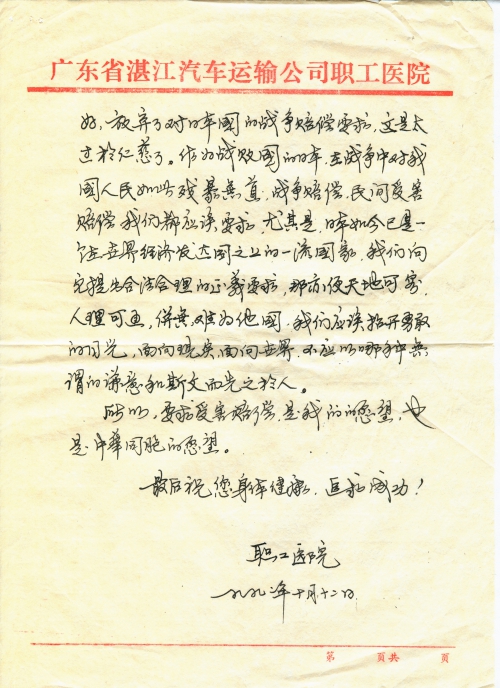 广东省湛江汽车运输公司职工医院
好，放弃了对日本国的战争赔偿要求，这是太
过于仁慈了。作为战败国的日本，在战争中对我
国人民如此残暴无道，战争赔偿，民间受害
赔偿我们都应该要求，尤其是，日本如今已是一
个在世界经济发达国之上的一流国家，我们向
它提出合法合理的正义要求，那亦便天地可容，
人理可通，并无难为他国，我们应该抬开勇敢
的目光，面向现实面向世界，不应以哪种无
谓的谦意和斯文而失之于人。
所以，要求受害赔偿，是我的的愿望，也
是中华同胞的愿望。
最后祝您身体健康，且祝成功！
职工医院
一九九二年十月十二日
第 页共 页